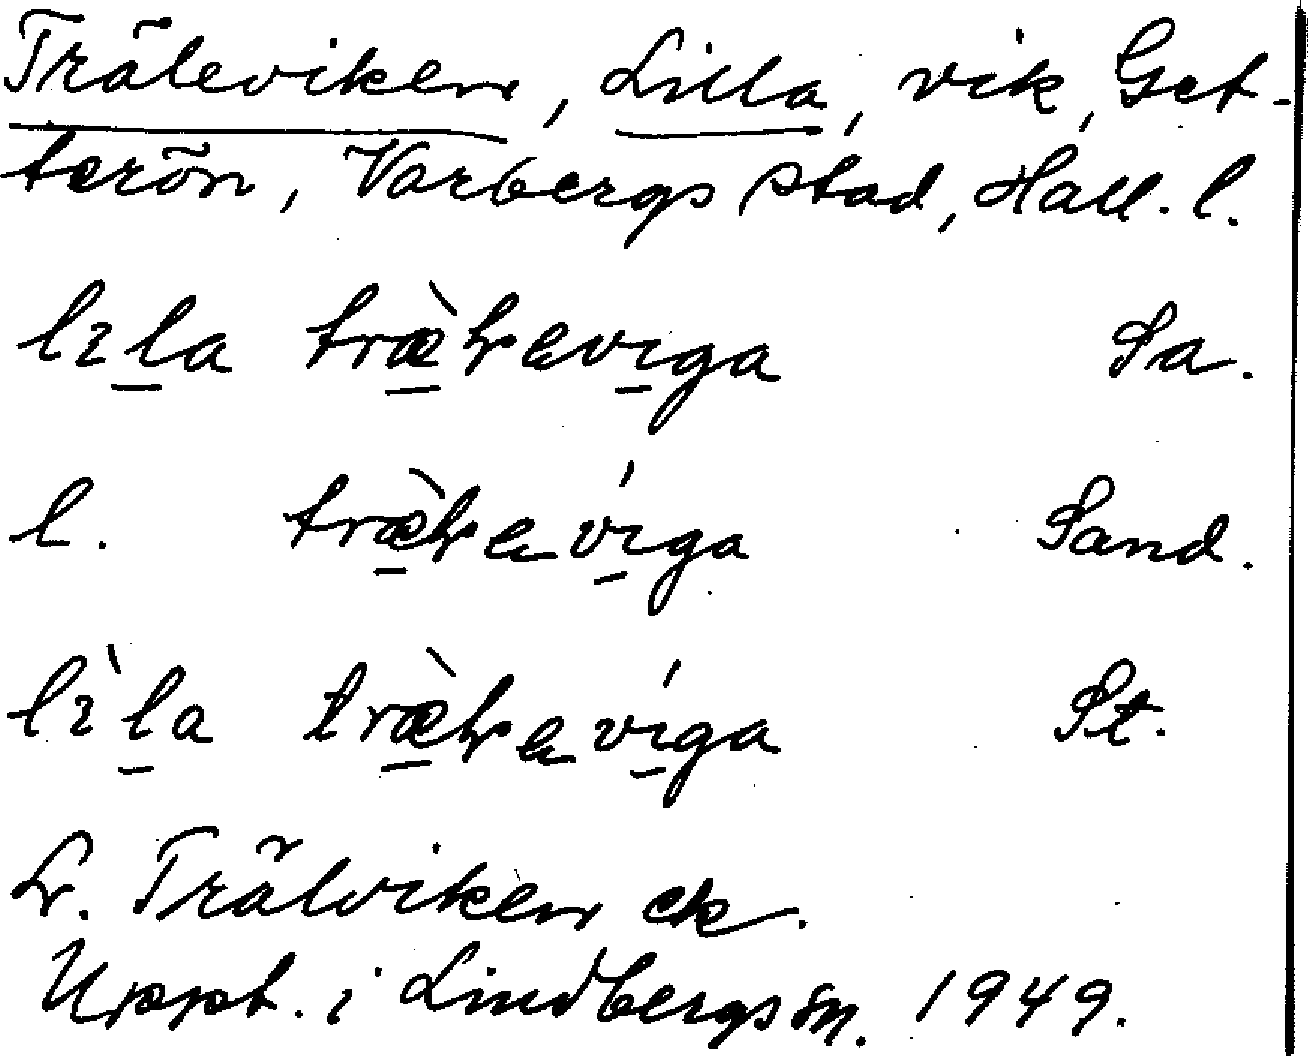 Träleviken, Lilla, vik, Get-
terön, Varbergs stad, Hall. l.
lɩla træ̀ɫeviga Sa.
l. træ̀ɫevíga Sand.
lɩ̀la træ̀ɫevíga St.
L. Trälviken ek.
Uppt. i Lindbergs sn. 1949.